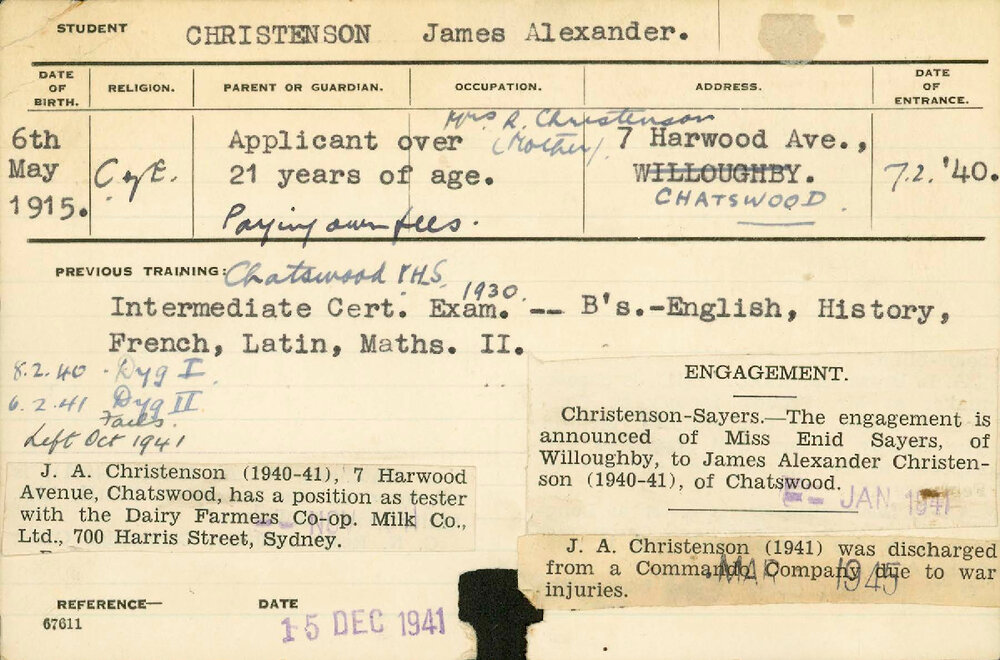 STUDENT CHRISTENSON James Alexander.
DATE OF BIRTH. RELIGION. PARENT OR GUARDIAN. OCCUPATION. ADDRESS. DATE OF ENTRANCE.
Mrs A. Christenson
6th Applicant over (Mother) 7 Harwood Ave.,
May C of E. 21 years of age. WILLOUGHBY. 7.2.'40.
1915. CHATSWOOD.
Paying own fees.
PREVIOUS TRAINING: Chatswood
1930.
Intermediate Cert. Exam. -- B's.-English, History,
French, Latin, Maths. II.
8.2.40 - Dyg I
6.2.41 Dyg II
Left Oct 1941
ENGAGEMENT.
Christenson-Sayers.—The engagement is
announced of Miss Enid Sayers, of
Willoughby, to James Alexander Christen-
son (1940-41), of Chatswood.
JAN 1941
J. A. Christenson (1940-41), 7 Harwood
Avenue, Chatswood, has a position as tester
with the Dairy Farmers Co-op. Milk Co.,
Ltd., 700 Harris Street, Sydney.
J. A. Christenson (1941) was discharged
from a Commando Company due to war
injuries.
MAR 1945
REFERENCE— DATE
67611
15 DEC 1941